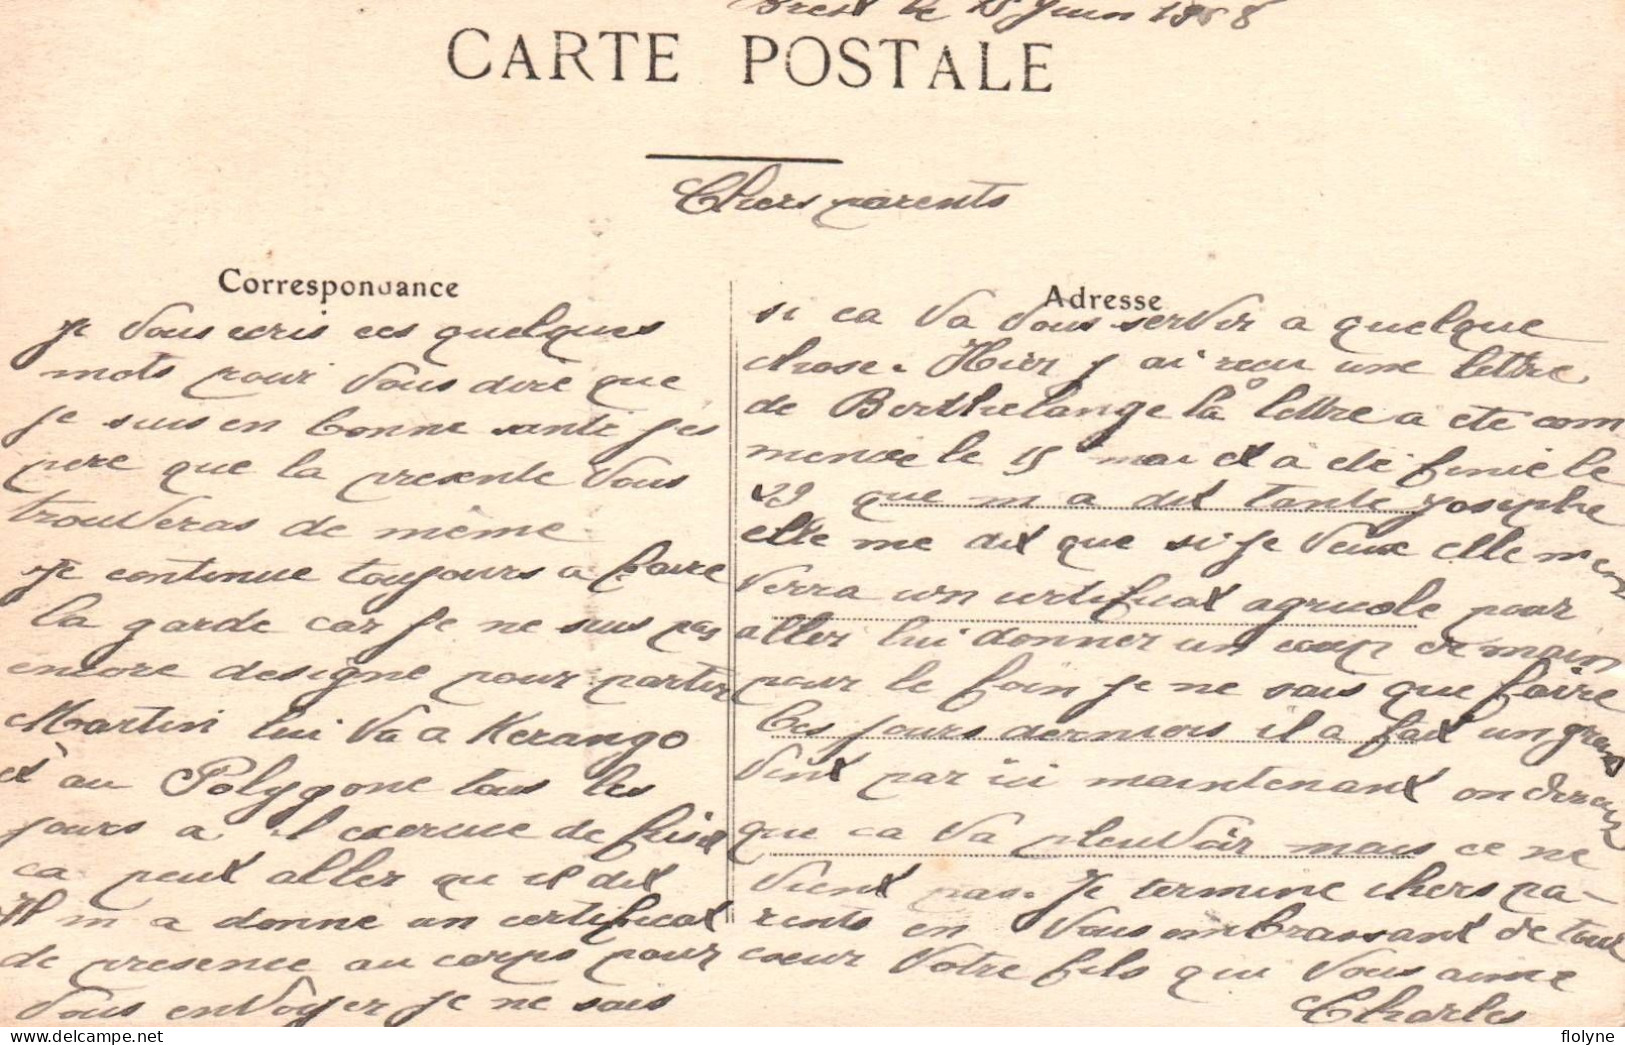 Brest le 15 Juin
CARTE POSTALE
Chers parents
Correspondance
je vous ecris ces quelques
mots pour vous dire que
je suis en bonne santé jes
pere que la presente vous
trouveras de même
Je continue toujours a faire
la garde car je ne suis pas
encore designe pour partir
Martin lui va a Kerango
et au Polygone tous les
jours a il exercice de
ca peut aller qu il dit
Il m a donne un certificat
de presence au corps pour
vous envoyer je ne sais
Adresse
si ca va vous servir a quelque
chose. Hier j ai recu une lettre
de Berthelange la lettre a ete com
mencée le 15 mai et a été finie le
29 que m a dit tante Josephe
elle me dit que si je veux elle m en
verra un certificat agricole pour
aller lui donner un coup de main
pour le foin je ne sais que faire
Ces jours derniers il a fait un grand
vent par ici maintenant on dirait
que ca va pleuvoir mais ce ne
vient pas. Je termine chers pa-
rents en vous embrassant de tout
coeur Votre fils qui vous aime
Charles
flolyne